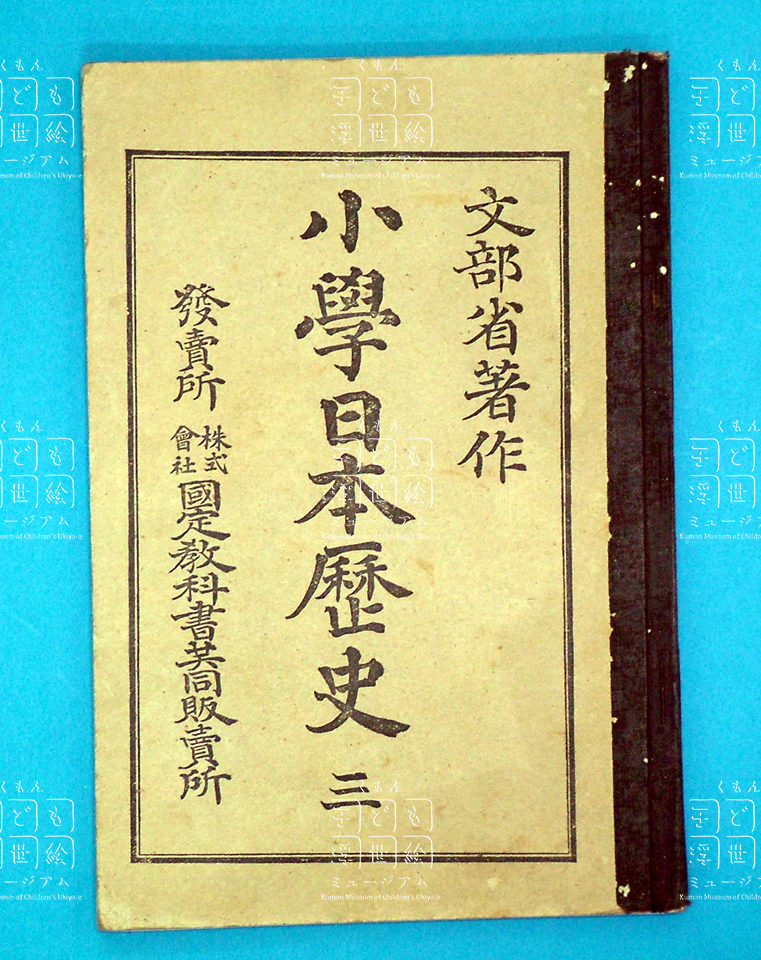 文部省著作
小學日本歷史 三
發賣所 株式會社 國定教科書共同販賣所
くもん
子ども
浮世絵
ミュージアム
Kumon Museum of Children's Ukiyo-e